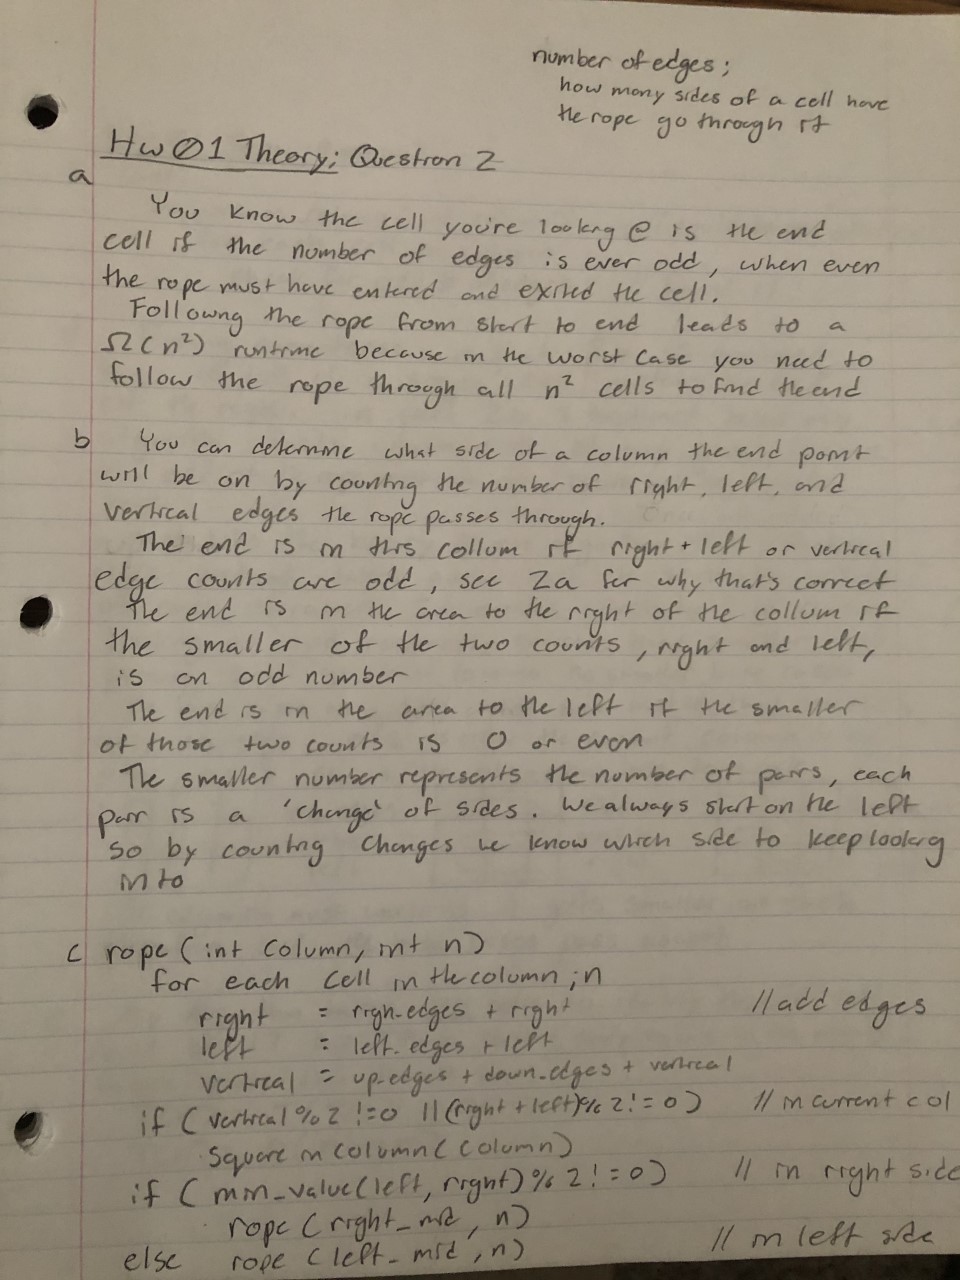 number of edges;
how many sides of a cell have
the rope go through it
HW 01 Theory; Question 2
a
You know the cell you're looking @ is the end
cell if the number of edges is ever odd, when even
the rope must have entered and exited the cell.
Following the rope from start to end leads to a
Ω(n²) runtime because in the worst case you need to
follow the rope through all n² cells to find the end
b You can determine what side of a column the end point
will be on by counting the number of right, left, and
vertical edges the rope passes through.
The end is in this collum if right + left or vertical
edge counts are odd, see 2a for why that's correct
The end is in the area to the right of the collum if
the smaller of the two counts, right and left,
is an odd number
The end is in the area to the left if the smaller
of those two counts is 0 or even
The smaller number represents the number of pairs, each
pair is a 'change' of sides. We always start on the left
so by counting changes we know which side to keep looking
in to
c rope (int column, int n)
for each cell in the column; n
right = righ-edges + right //add edges
left = left.edges + left
vertical = up-edges + down-edges + vertical
if (vertical % 2 != 0 || (right + left) % 2 != 0) // in current col
square in column (column)
if (min_value(left, right) % 2 != 0) // in right side
rope (right_mid, n)
else rope (left_mid, n) // in left side